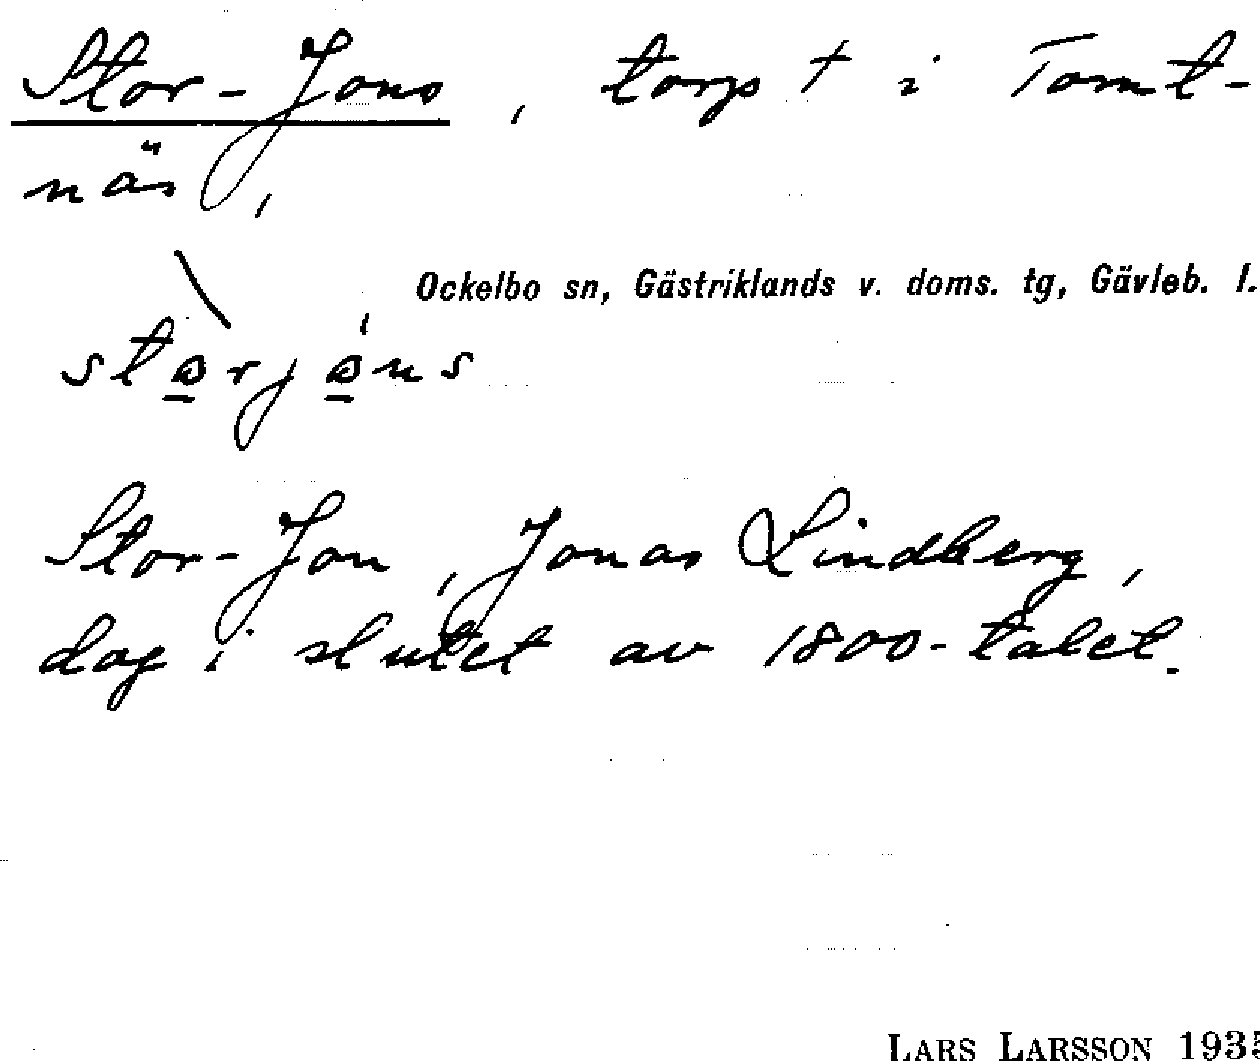 Stor-Jons, torp † i Tomt-
näs,
Ockelbo sn, Gästriklands v. doms. tg, Gävleb. l.
Stor-Jon, Jonas Lindberg,
dog i slutet av 1800-talet.
LARS LARSSON 1935